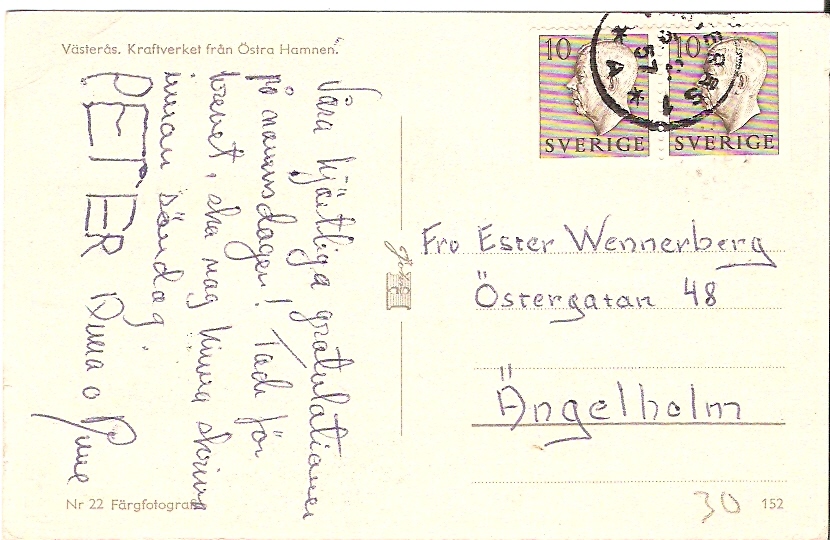 Västerås. Kraftverket från Östra Hamnen.
Våra hjärtliga gratulationer
på namnsdagen! Tack för
brevet, ska nog hinna skriva
innan söndag.
PETER Anna o Rune
Nr 22 Färgfotografi
10
10
SVERIGE
SVERIGE
57
* A *
1
Fru Ester Wennerberg
Östergatan 48
Ängelholm
30
152